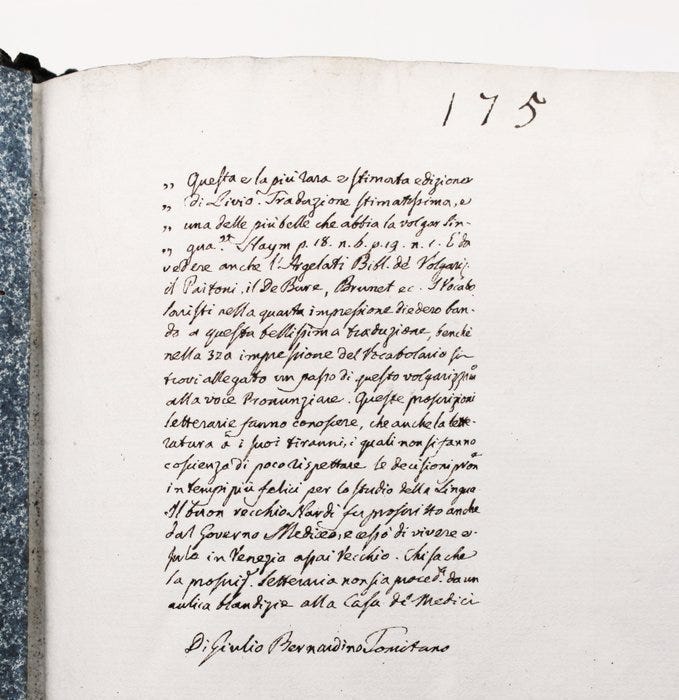 175
„ Questa e la più rara e stimata edizione
„ di Livio. Traduzione stimatissima, e
„ una delle più belle che abbia la volgar lin-
„ gua. Haym p. 18. n. 6. p. 19. n. 1. È da
vedere anche l'Argelati Bibl. de' Volgariz.
il Paitoni, il De Bure, Brunet ec. I Vocabo
laristi nella quarta impressione diedero ban-
do a questa bellissima traduzione, benchè
nella 3za impressione del Vocabolario si
trovi allegato un passo di questo volgarizz.to
alla voce Pronunziare. Queste proscrizioni
letterarie fanno conoscere, che anche la lette-
ratura à i suoi tiranni, i quali non si fanno
coscienza di poco rispettare le decisioni pron.te
in tempi più felici per lo studio della Lingua
Il buon vecchio Nardi fu proscritto anche
dal Governo Mediceo, e cessò di vivere e-
sule in Venezia assai vecchio. Chi sa che
la proscriz. letteraria non sia proced.ta da un
aulica blandizie alla Casa de' Medici
Di Giulio Bernardino Tomitano